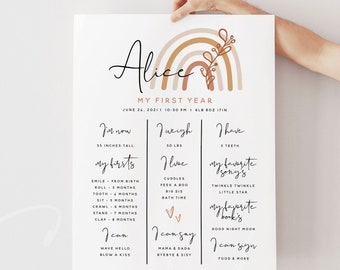 Alice
MY FIRST YEAR
JUNE 24, 2021 | 10:30 AM | 6LB 8OZ 21IN
I'm now
33 INCHES TALL
my firsts
SMILE - FROM BIRTH
ROLL - 3 MONTHS
TOOTH - 4 MONTHS
SIT - 5 MONTHS
CRAWL - 6 MONTHS
STAND - 7 MONTHS
CLAP - 8 MONTHS
I can
WAVE HELLO
BLOW A KISS
I weigh
30 LBS
I love
CUDDLES
PEEK A BOO
BIG SIS
BATH TIME
I can say
MAMA & DADA
BYEBYE & SISY
I have
5 TEETH
my favorite
song's
TWINKLE TWINKLE
LITTLE STAR
my favorite
books
GOOD NIGHT MOON
I can sign
FOOD & MORE